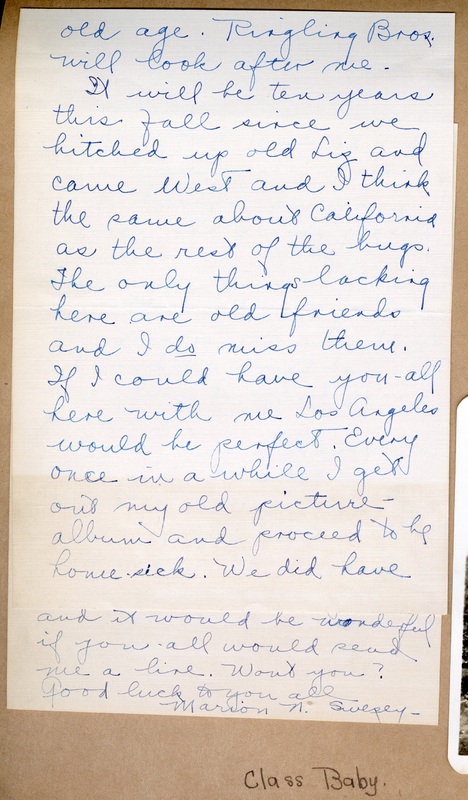 old age. Ringling Bros.
will look after me.
It will be ten years
this fall since we
hitched up old Liz and
came West and I think
the same about California
as the rest of the bugs.
The only things lacking
here are old friends
and I do miss them.
If I could have you-all
here with me Los Angeles
would be perfect. Every
once in a while I get
out my old picture-
album and proceed to be
home-sick. We did have
and it would be wonderful
if you-all would send
me a line. Won't you?
Good luck to you all
Marion N. Swezey-
Class Baby.